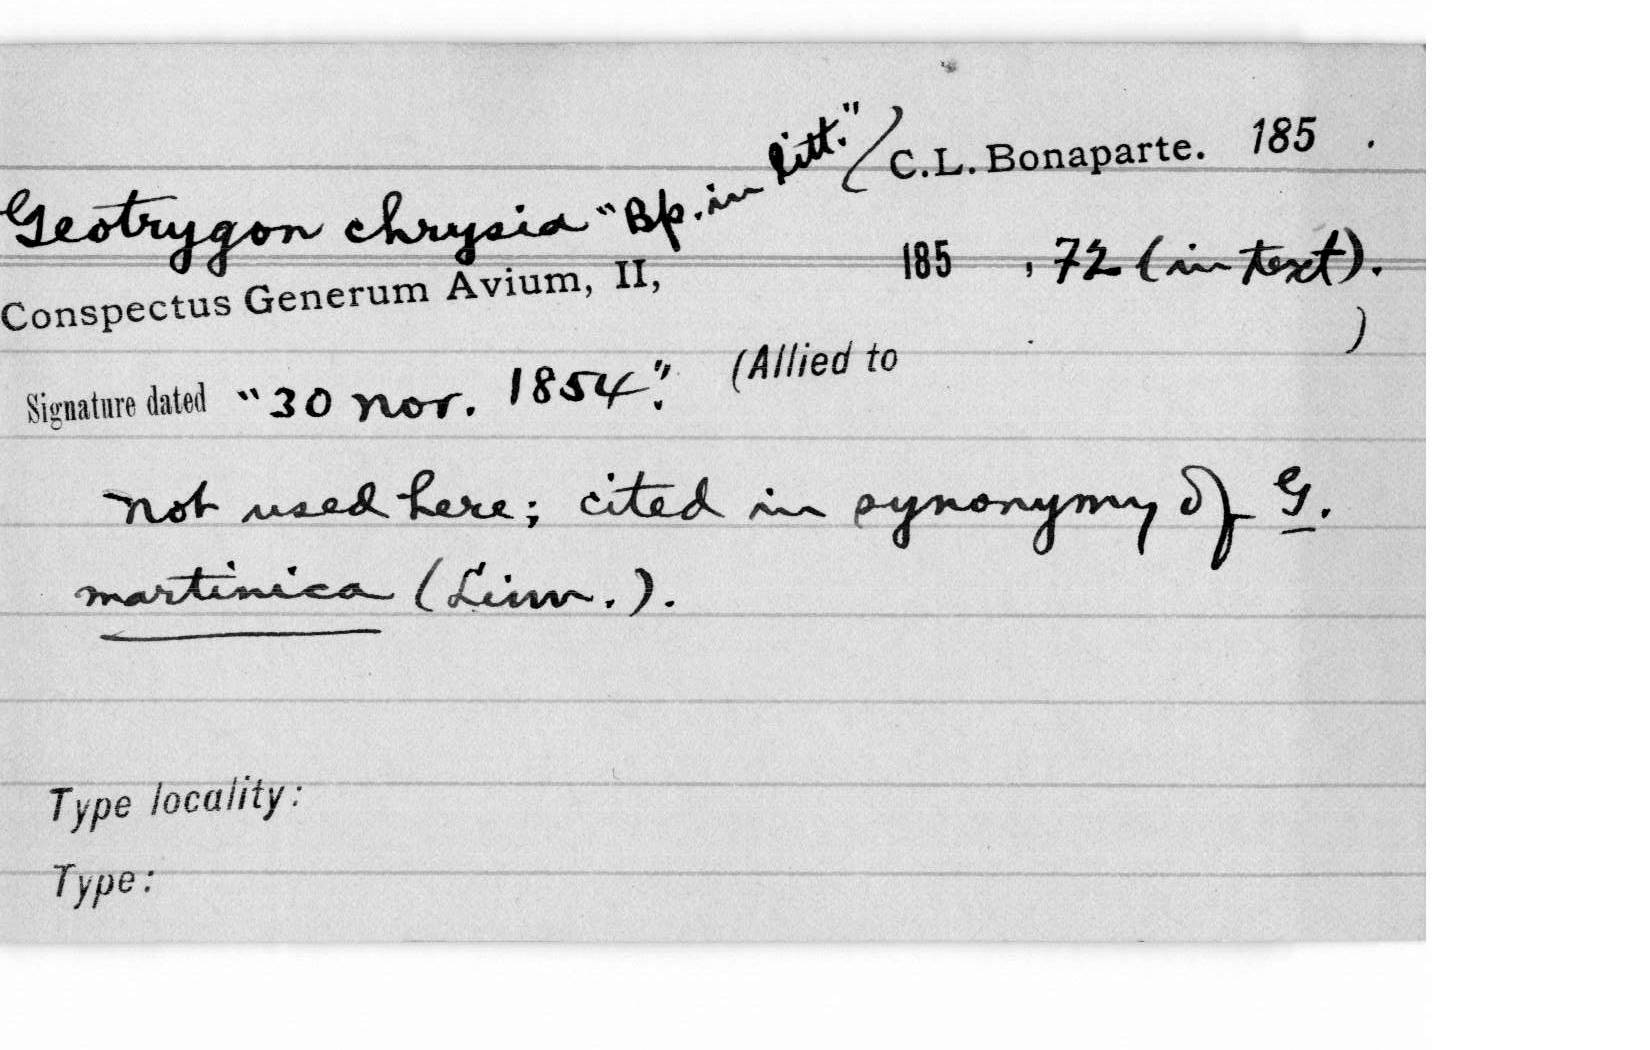 Geotrygon chrysia "Bp. in litt." / C.L. Bonaparte. 185 .
Conspectus Generum Avium, II, 185 , 72 (in text).
Signature dated "30 nov. 1854". (Allied to )
not used here; cited in synonymy of G.
martinica (Linn.).
Type locality:
Type: